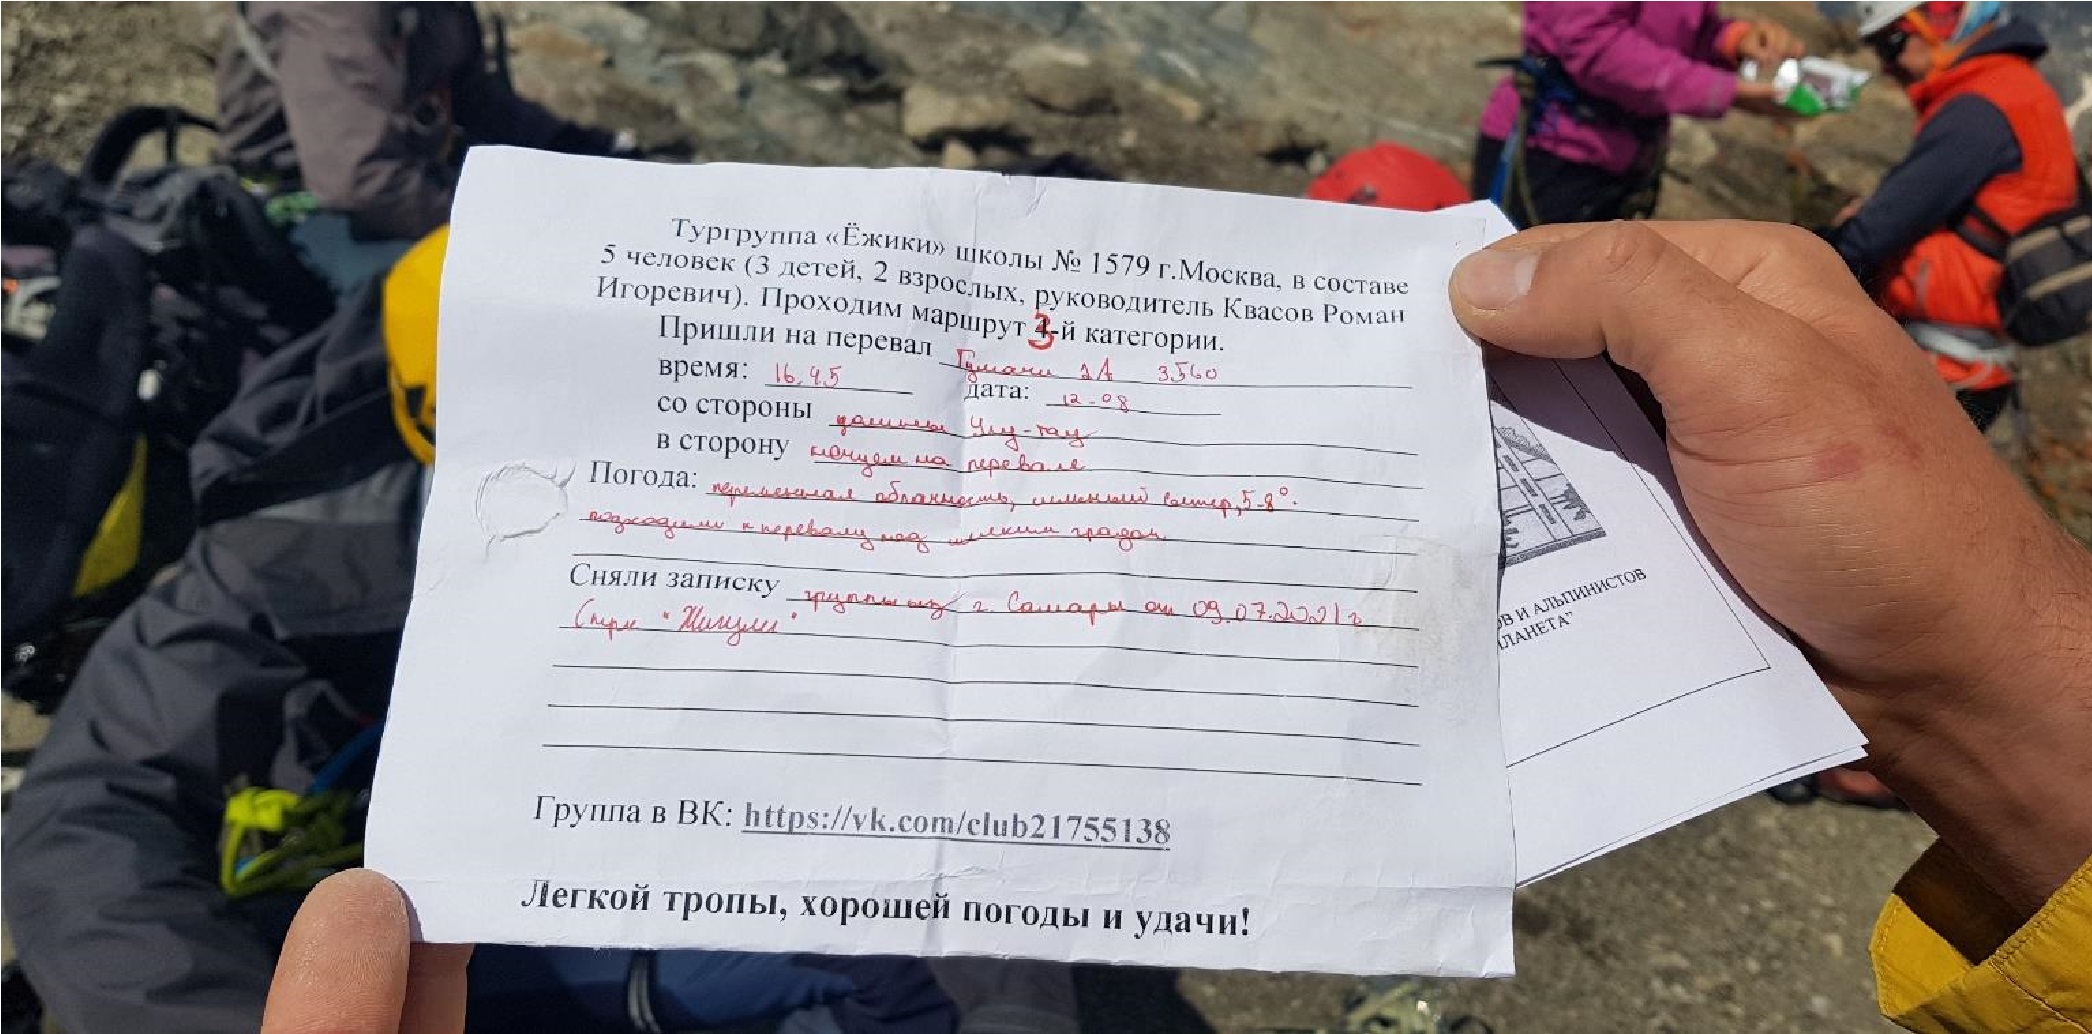 Тургруппа «Ёжики» школы № 1579 г.Москва, в составе
5 человек (3 детей, 2 взрослых, руководитель Квасов Роман
Игоревич). Проходим маршрут 3-й категории.
Пришли на перевал Гумачи 2А 3560
время: 16.45 дата: 12.08
со стороны долины Улу-тау
в сторону ночуем на перевале
Погода: переменная облачность, сильный ветер, 5-8°.
подходили к перевалу под мелким градом
Сняли записку группы из г. Самары от 09.07.2021 г
"Жигули"
Группа в ВК: https://vk.com/club21755138
Легкой тропы, хорошей погоды и удачи!
ОВ И АЛЬПИНИСТОВ
ЛАНЕТА"